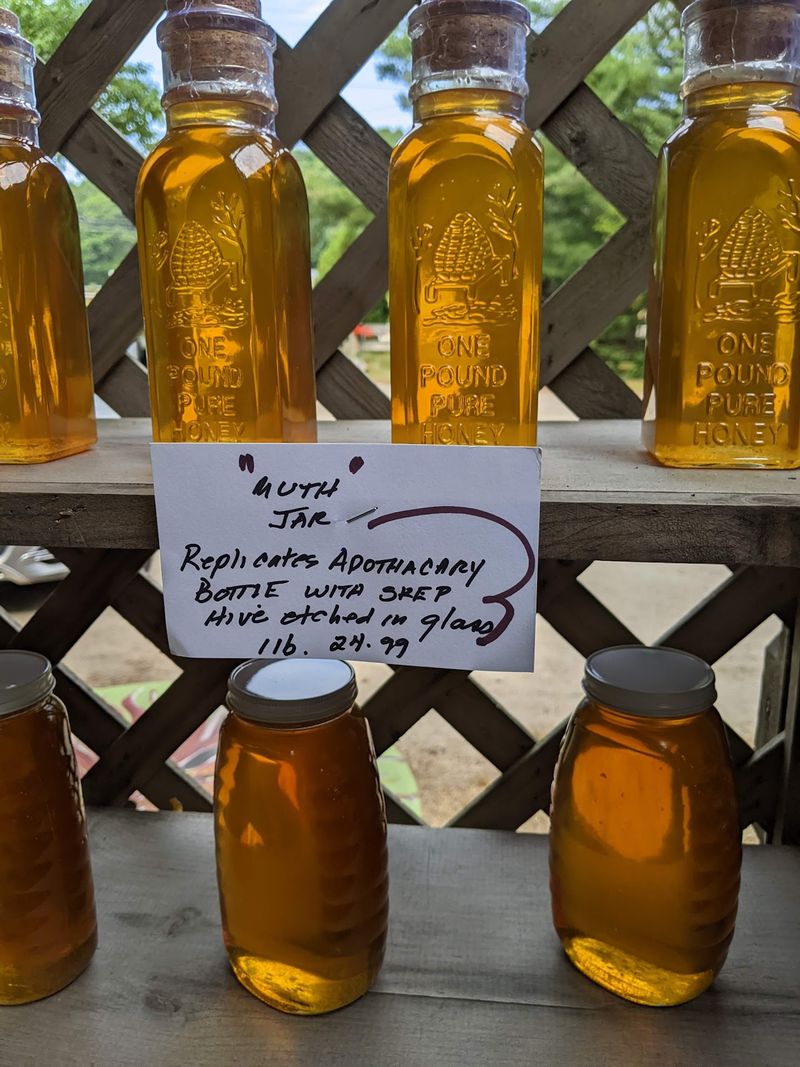 ONE
POUND
PURE
HONEY
ONE
POUND
PURE
HONEY
ONE
POUND
PURE
HONEY
"MUTH"
JAR
Replicates APOTHACARY
BOTTLE WITH SKEP
Hive etched in glass
1 lb. 24.99